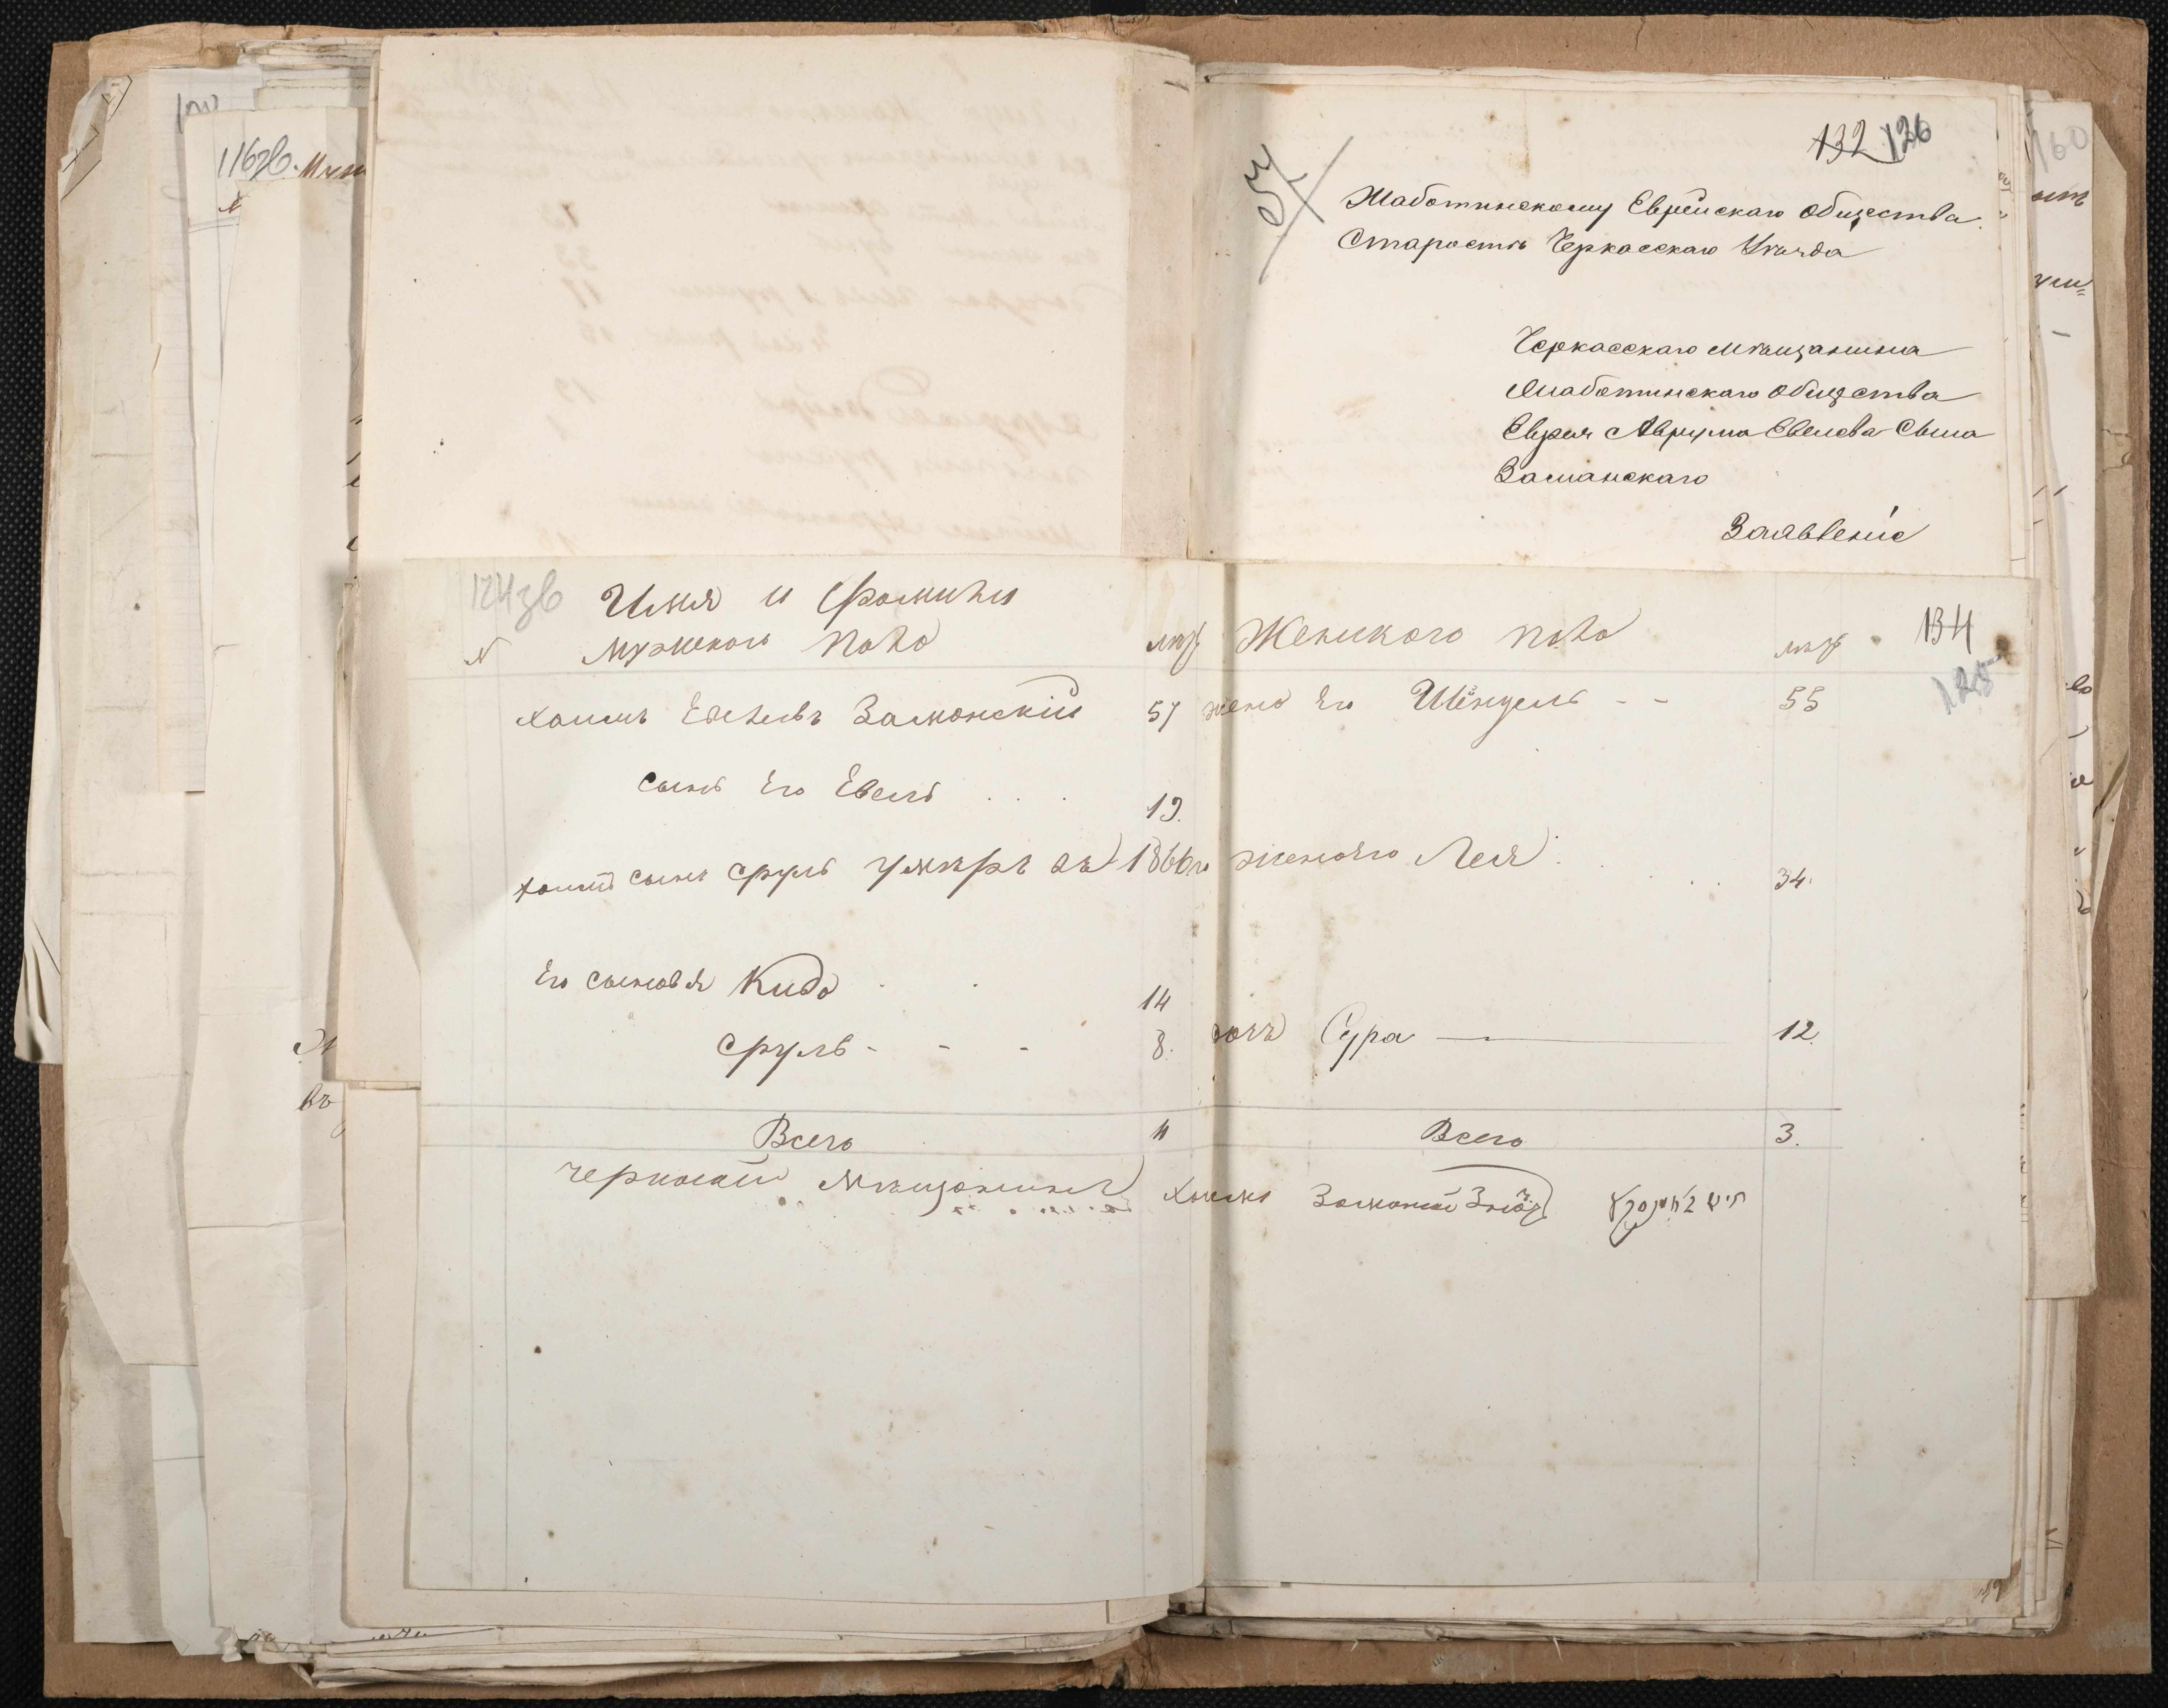 132 126
Жаботинскому Еврейскаго Общества
Старостѣ Черкасскаго Уѣзда
Черкасскаго мѣщанина
Жаботинскаго Общества
Еврея Аврума Евелева Сына
Заманскаго
Заявленіе
124зв Имя и Фамилия
N мужеского пола лѣт Женского пола лѣт 134
125
Хаимъ Евелевъ Заманский 57 жена Его Шендель - - 55
сынъ Его Евель . . . 19.
сынъ Сруль умеръ въ 1866го жена его Лея . . . 34.
Его сыновья Кидо . . 14
Сруль - - - 8. дочь Сура — 12.
Всего 4 Всего 3.
Черкаский Мѣщанинъ Хаимъ Заманский
116зв.
160